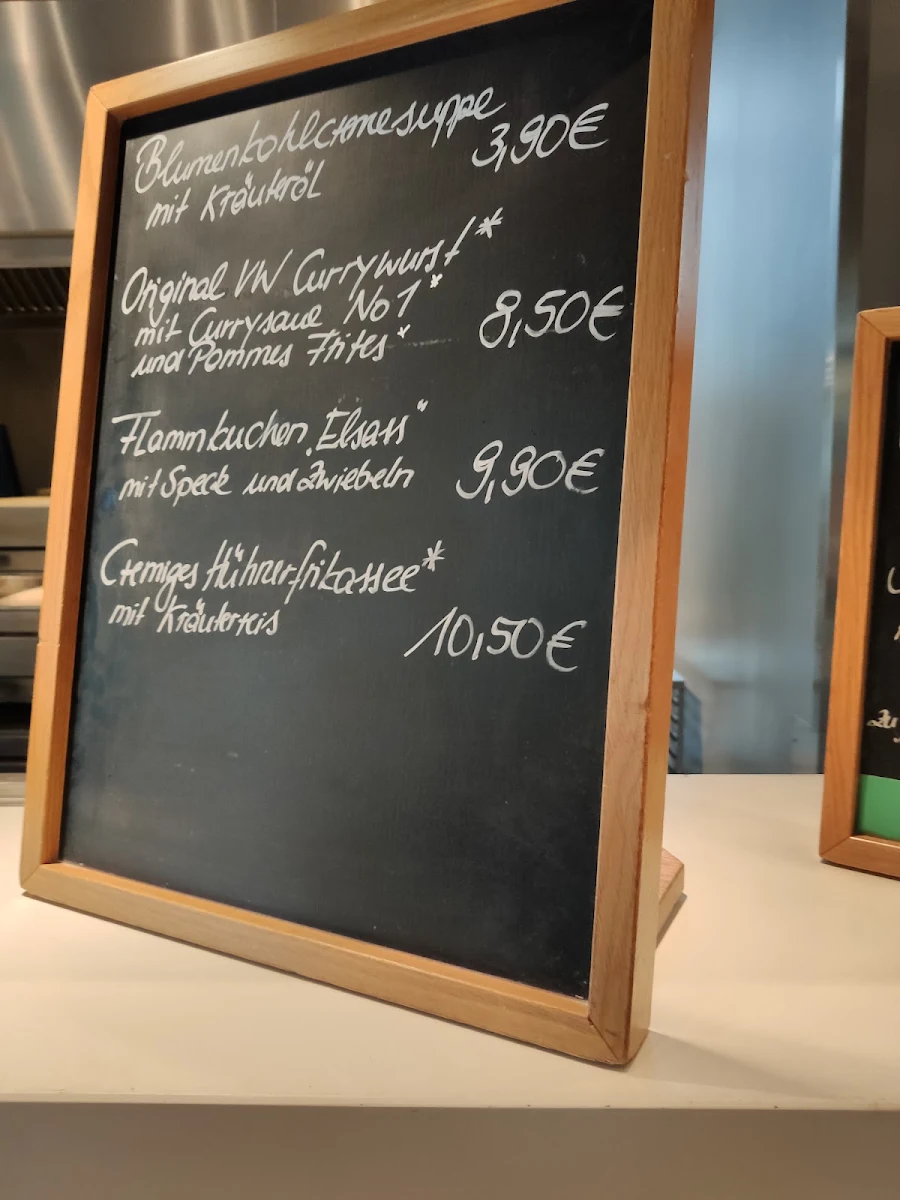 Blumenkohlcremesuppe
mit Kräuteröl 3,90€
Original VW Currywurst*
mit Currysauce No 1*
und Pommes Frites* 8,50€
Flammkuchen „Elsass“
mit Speck und Zwiebeln 9,90€
Cremiges Hühnerfrikassee*
mit Kräuterreis
10,50€